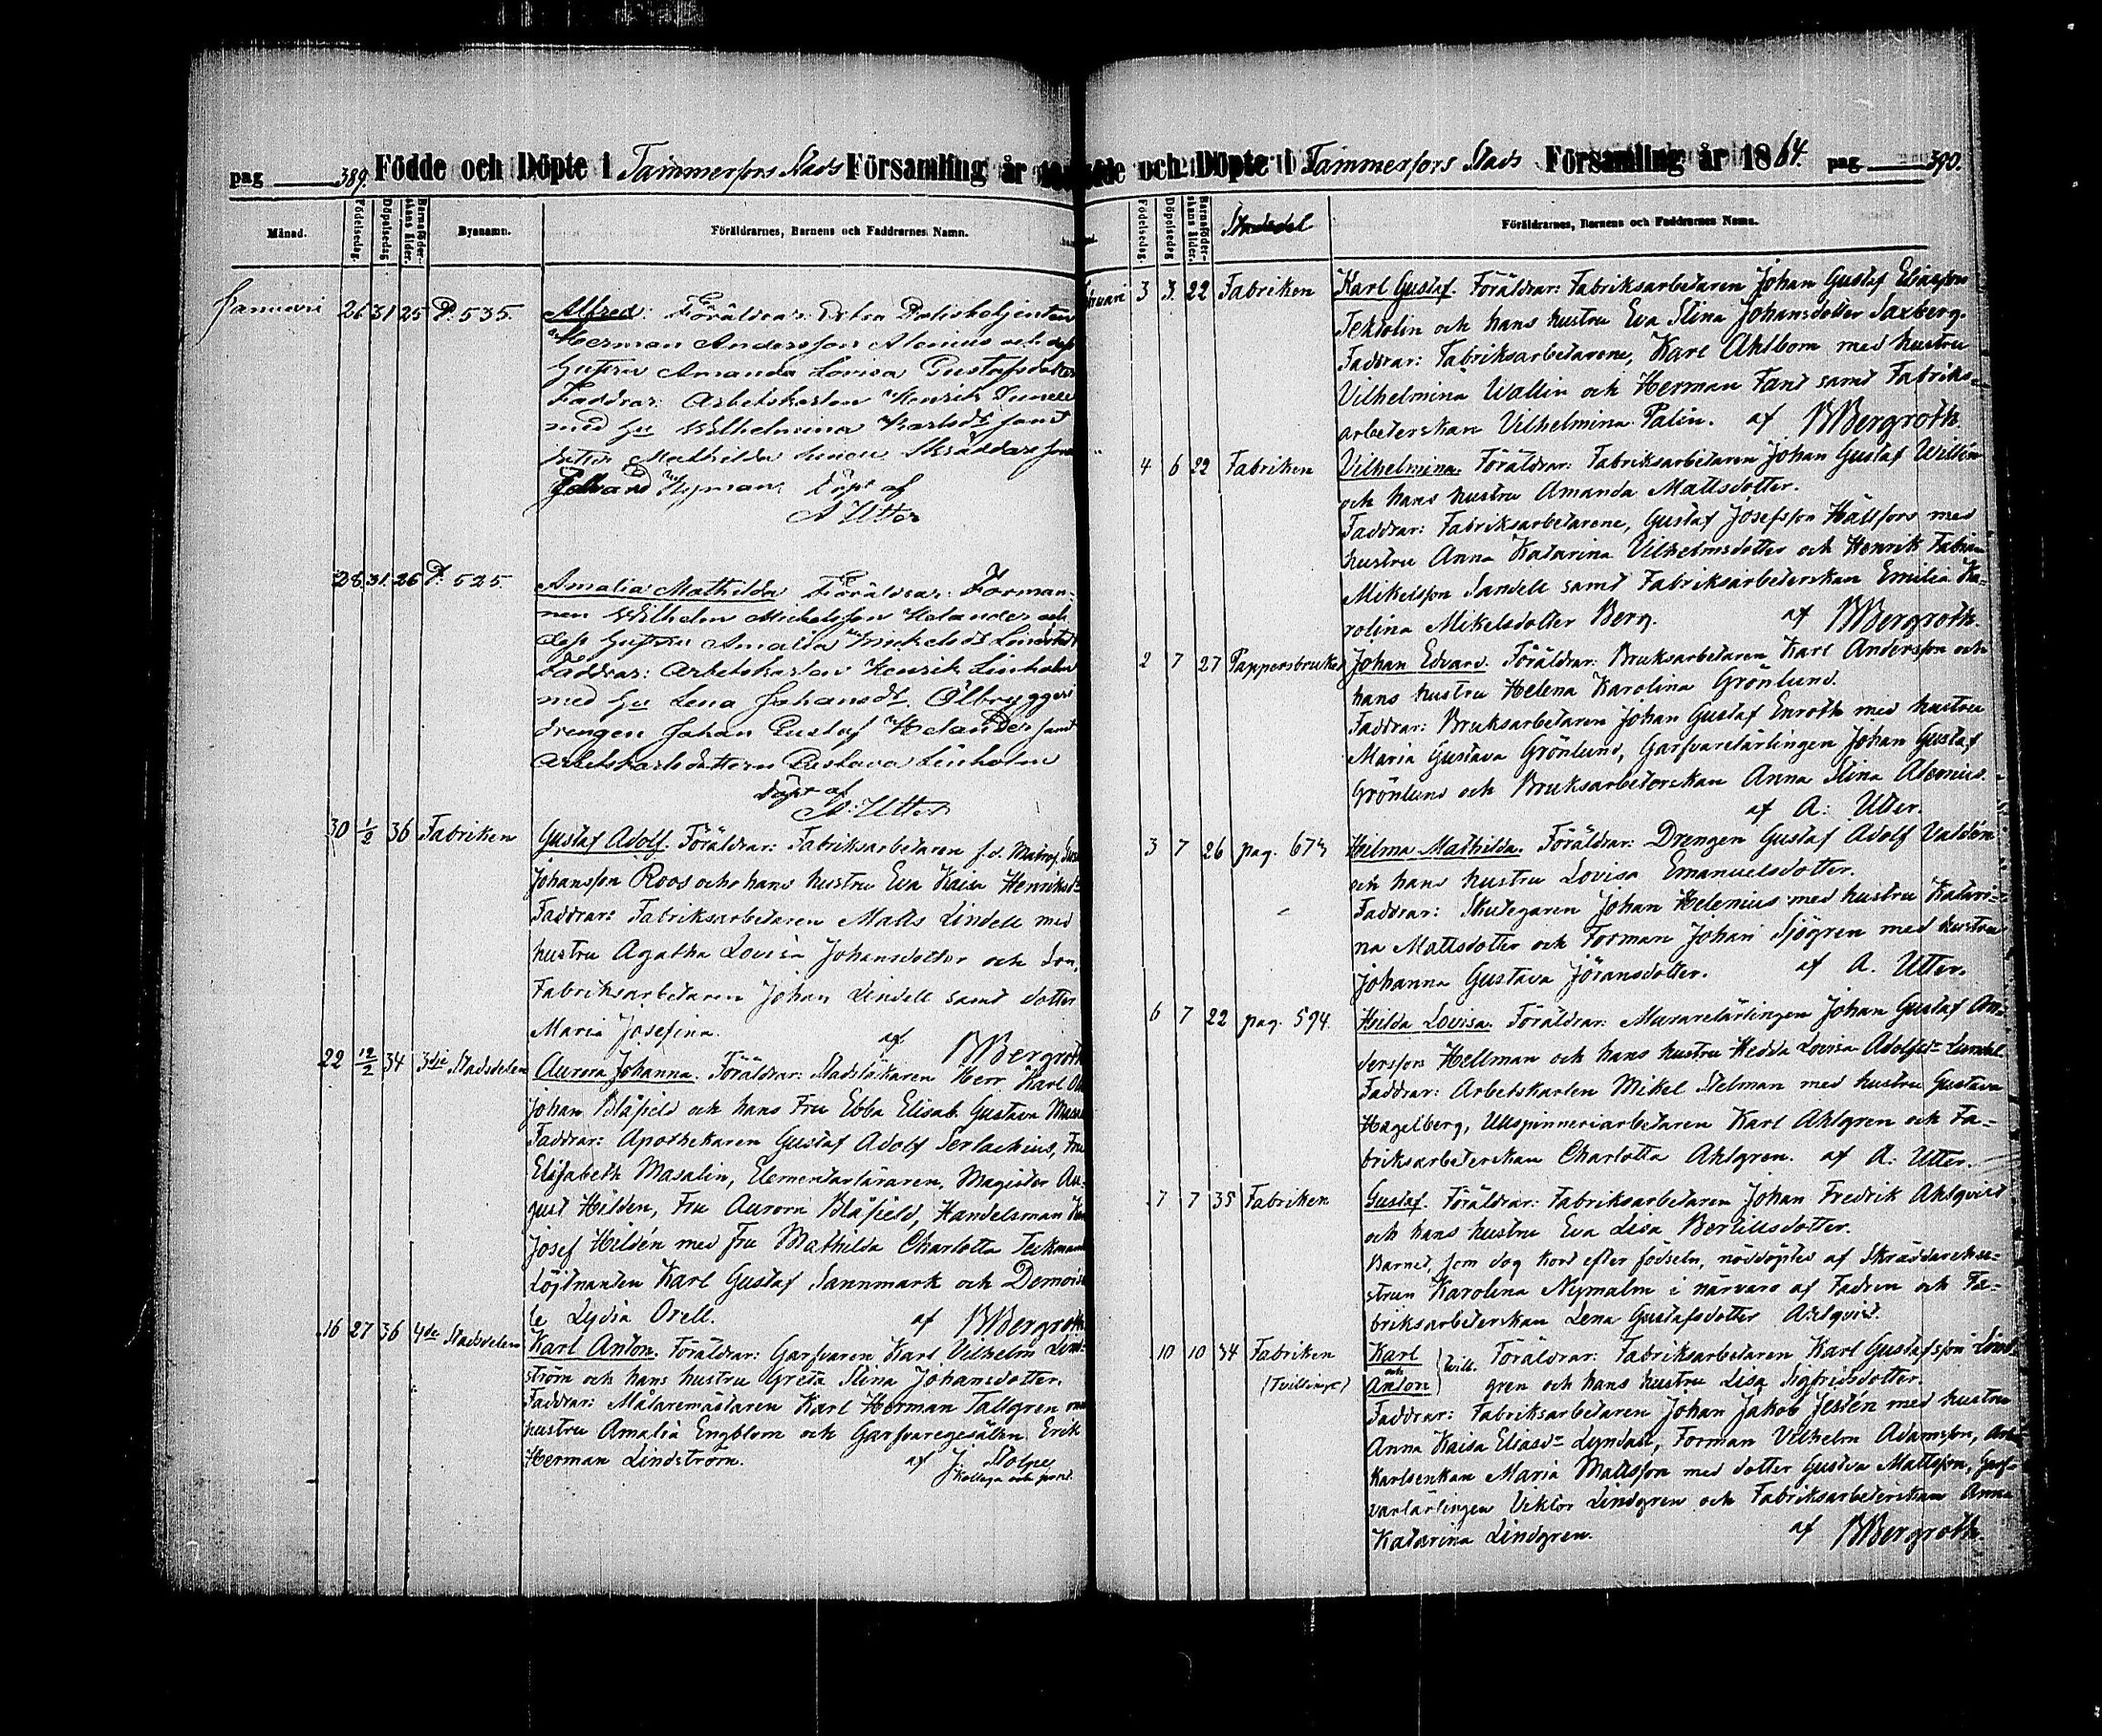 pag 389. Födde och Döpte i Tammerfors Stads Församling år
Månad.
Födelsedag.
Döpelsedag.
Barnaföder-
skans ålder.
Bynamn.
Föräldrarnes, Barnens och Faddrarnes Namn.
Januari 26 31 25 P. 535. Alfred. Föräldrar: Extra Polisbetjenten
Herman Andersson Alenius och dess
hustru Amanda Lovisa Gustafsdotter
Faddrar: Arbetskarlen Henrik
med hu Wilhelmina Karlsdr samt
dotter Mathilda Skräddare
Edvard Nyman. Döpt af
A Utter
28 31 26 P. 525. Amalia Mathilda Föräldrar: Forman-
nen Wilhelm Michelsson Helander och
dess hustru Amalda Michelsdr Lindstedt
Faddrar: Arbetskarlen Henrik Linholm
med hu Lena Johansdr, Ölbryggeri
drengen Johan Gustaf Helander samt
Arbetskarlsdottern Gustava Linholm
Döpt af
A: Utter
30 1/2 36 Fabriken Gustaf Adolf. Föräldrar: Fabriksarbetaren f.d. Matros
Johansson Roos och hans hustru Eva Kaisa Henriksdr
Faddrar: Fabriksarbetaren Matts Lindell med
hustru Agatha Lovisa Johansdotter och Son,
Fabriksarbetaren Johan Lindell samt dotter
Maria Josefina. af BBergroth
22 12/2 34 3dje Stadsdelen Aurora Johanna. Föräldrar: Stadsläkaren Herr Karl
Johan Blåfield och hans Fru Ebba Elisab. Gustava
Faddrar: Apothekaren Gustaf Adolf Serlachius, Fru
Elisabeth Masalin, Elementarläraren, Magister Au-
gust Hildén, Fru Aurora Blåfield, Handelsman
Josef Hildén med Fru Mathilda Charlotta Teckman
Löjtnanten Karl Gustaf Sannmark och Demoisel-
le Lydia Orell. af BBergroth
16 27 36 4de Stadsdelen Karl Anton. Föräldrar: Garfvaren Karl Vilhelm Lind-
ström och hans hustru Greta Stina Johansdotter.
Faddrar: Målaremästaren Karl Herman Tallgren med
hustru Amalia Engblom och Garfvaregesällen Erik
Herman Lindström. af J. Stolpe
Kollega och
och Döpte i Tammerfors Stads Församling år 1864. pag 390.
Födelsedag.
Döpelsedag
Barnaföder-
skans ålder.
Stadsdel
Föräldrarnes, Barnens och Faddrarnes Namn.
3 3 22 Fabriken Karl Gustaf. Föräldrar: Fabriksarbetaren Johan Gustaf Eliasson
Tektolin och hans hustru Eva Stina Johansdotter Saxberg.
Faddrar: Fabriksarbetarene, Karl Ahlbom med hustru
Vilhelmina Wallin och Herman Fant samt Fabriks-
arbeterskan Vilhelmina Palin. af BBergroth
" 4 6 22 Fabriken Vilhelmina. Föräldrar: Fabriksarbetaren Johan Gustaf Willén
och hans hustru Amanda Mattsdotter.
Faddrar: Fabriksarbetarene, Gustaf Josefsson Hällfors med
hustru Anna Katarina Vilhelmsdotter och Henrik Fabian
Mikelsson Sandell samt Fabriksarbeterskan Emilia Ka-
rolina Mikelsdotter Berg. af BBergroth.
2 7 27 Pappersbruket Johan Edvard. Föräldrar: Bruksarbetaren Karl Andersson och
hans hustru Helena Karolina Grönlund.
Faddrar: Bruksarbetaren Johan Gustaf Enroth med hustru
Maria Gustava Grönlund, Garfvarelärlingen Johan Gustaf
Grönlund och Bruksarbeterskan Anna Stina Alenius.
af A: Utter.
3 7 26 pag. 673 Hilma Mathilda. Föräldrar: Drengen Gustaf Adolf Valdén
och hans hustru Lovisa Emanuelsdotter.
Faddrar: Skutegaren Johan Helenius med hustru Katari-
na Mattsdotter och Forman Johan Sjögren med hustru
Johanna Gustava Jöransdotter. af A. Utter.
6 7 22 pag. 594. Hilda Lovisa. Föräldrar: Murarelärlingen Johan Gustaf An-
dersson Hellman och hans hustru Hedda Lovisa Adolfsdr
Faddrar: Arbetskarlen Mikel Stelman med hustru Gustava
Hagelberg, Ullspinneriarbetaren Karl Ahlgren och Fa-
briksarbeterskan Charlotta Ahlgren. af A: Utter.
7 7 35 Fabriken Gustaf. Föräldrar: Fabriksarbetaren Johan Fredrik Ahlqvist
och hans hustru Eva Lisa Bertillsdotter.
Barnet, som dog kort efter födseln, nöddöptes af Skräddarehu-
strun Karolina Nymalm i närvaro af Fadren och Fa-
briksarbeterskan Lena Gustafsdotter Ahlqvist.
10 10 34 Fabriken Karl och Tvill. Föräldrar: Fabriksarbetaren Karl Gustafsson Lind-
(Tvillingar) Anton gren och hans hustru Lisa Sigfridsdotter.
Faddrar: Fabriksarbetaren Johan Jakob Jestén med hustru
Anna Kaisa Eliasdr Lyndall, Forman Vilhelm Adamsson, Arbets
karlsenkan Maria Mattsson med dotter Gustva Mattsson, Garf-
varlärlingen Viktor Lindgren och Fabriksarbeterskan Anna
Katarina Lindgren. af BBergroth.